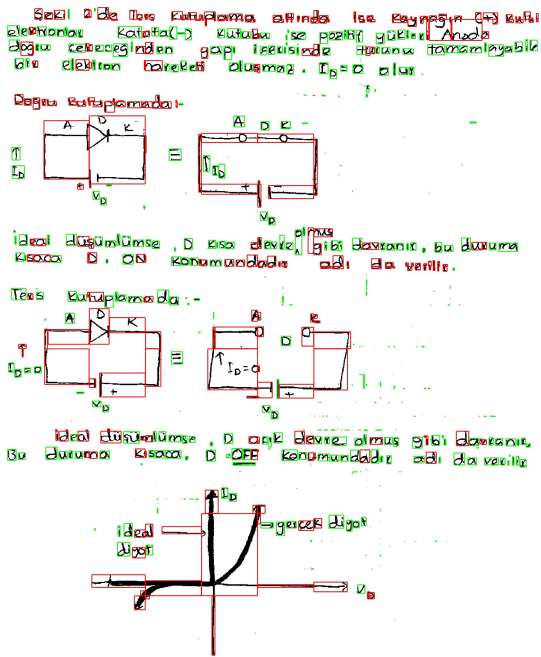 Şekil 2'de Ters kutuplama altında ise kaynağın (+) kutbu
elektronlar Katota(-) kutubu ise pozitif yükler Anoda
doğru çekeceğinden yapı içerisinde turunu tamamlayabilen
bir elektron hareketi oluşmaz. I_D=0 olur.
Doğru kutuplamada:-
A D K A D K
I_D = I_D
+ - + -
V_D V_D
ideal düşümlümse, D kısa devre olmuş gibi davranır, bu duruma
kısaca D, ON konumundadır adı da verilir.
Ters kutuplamada:-
A D K A K
D
I_D=0 = I_D=0
- + - +
V_D V_D
ideal düşümlümse, D açık devre olmuş gibi davranır.
Bu duruma kısaca, D OFF konumundadır adı da verilir
I_D
ideal diyot
gerçek diyot
V_D